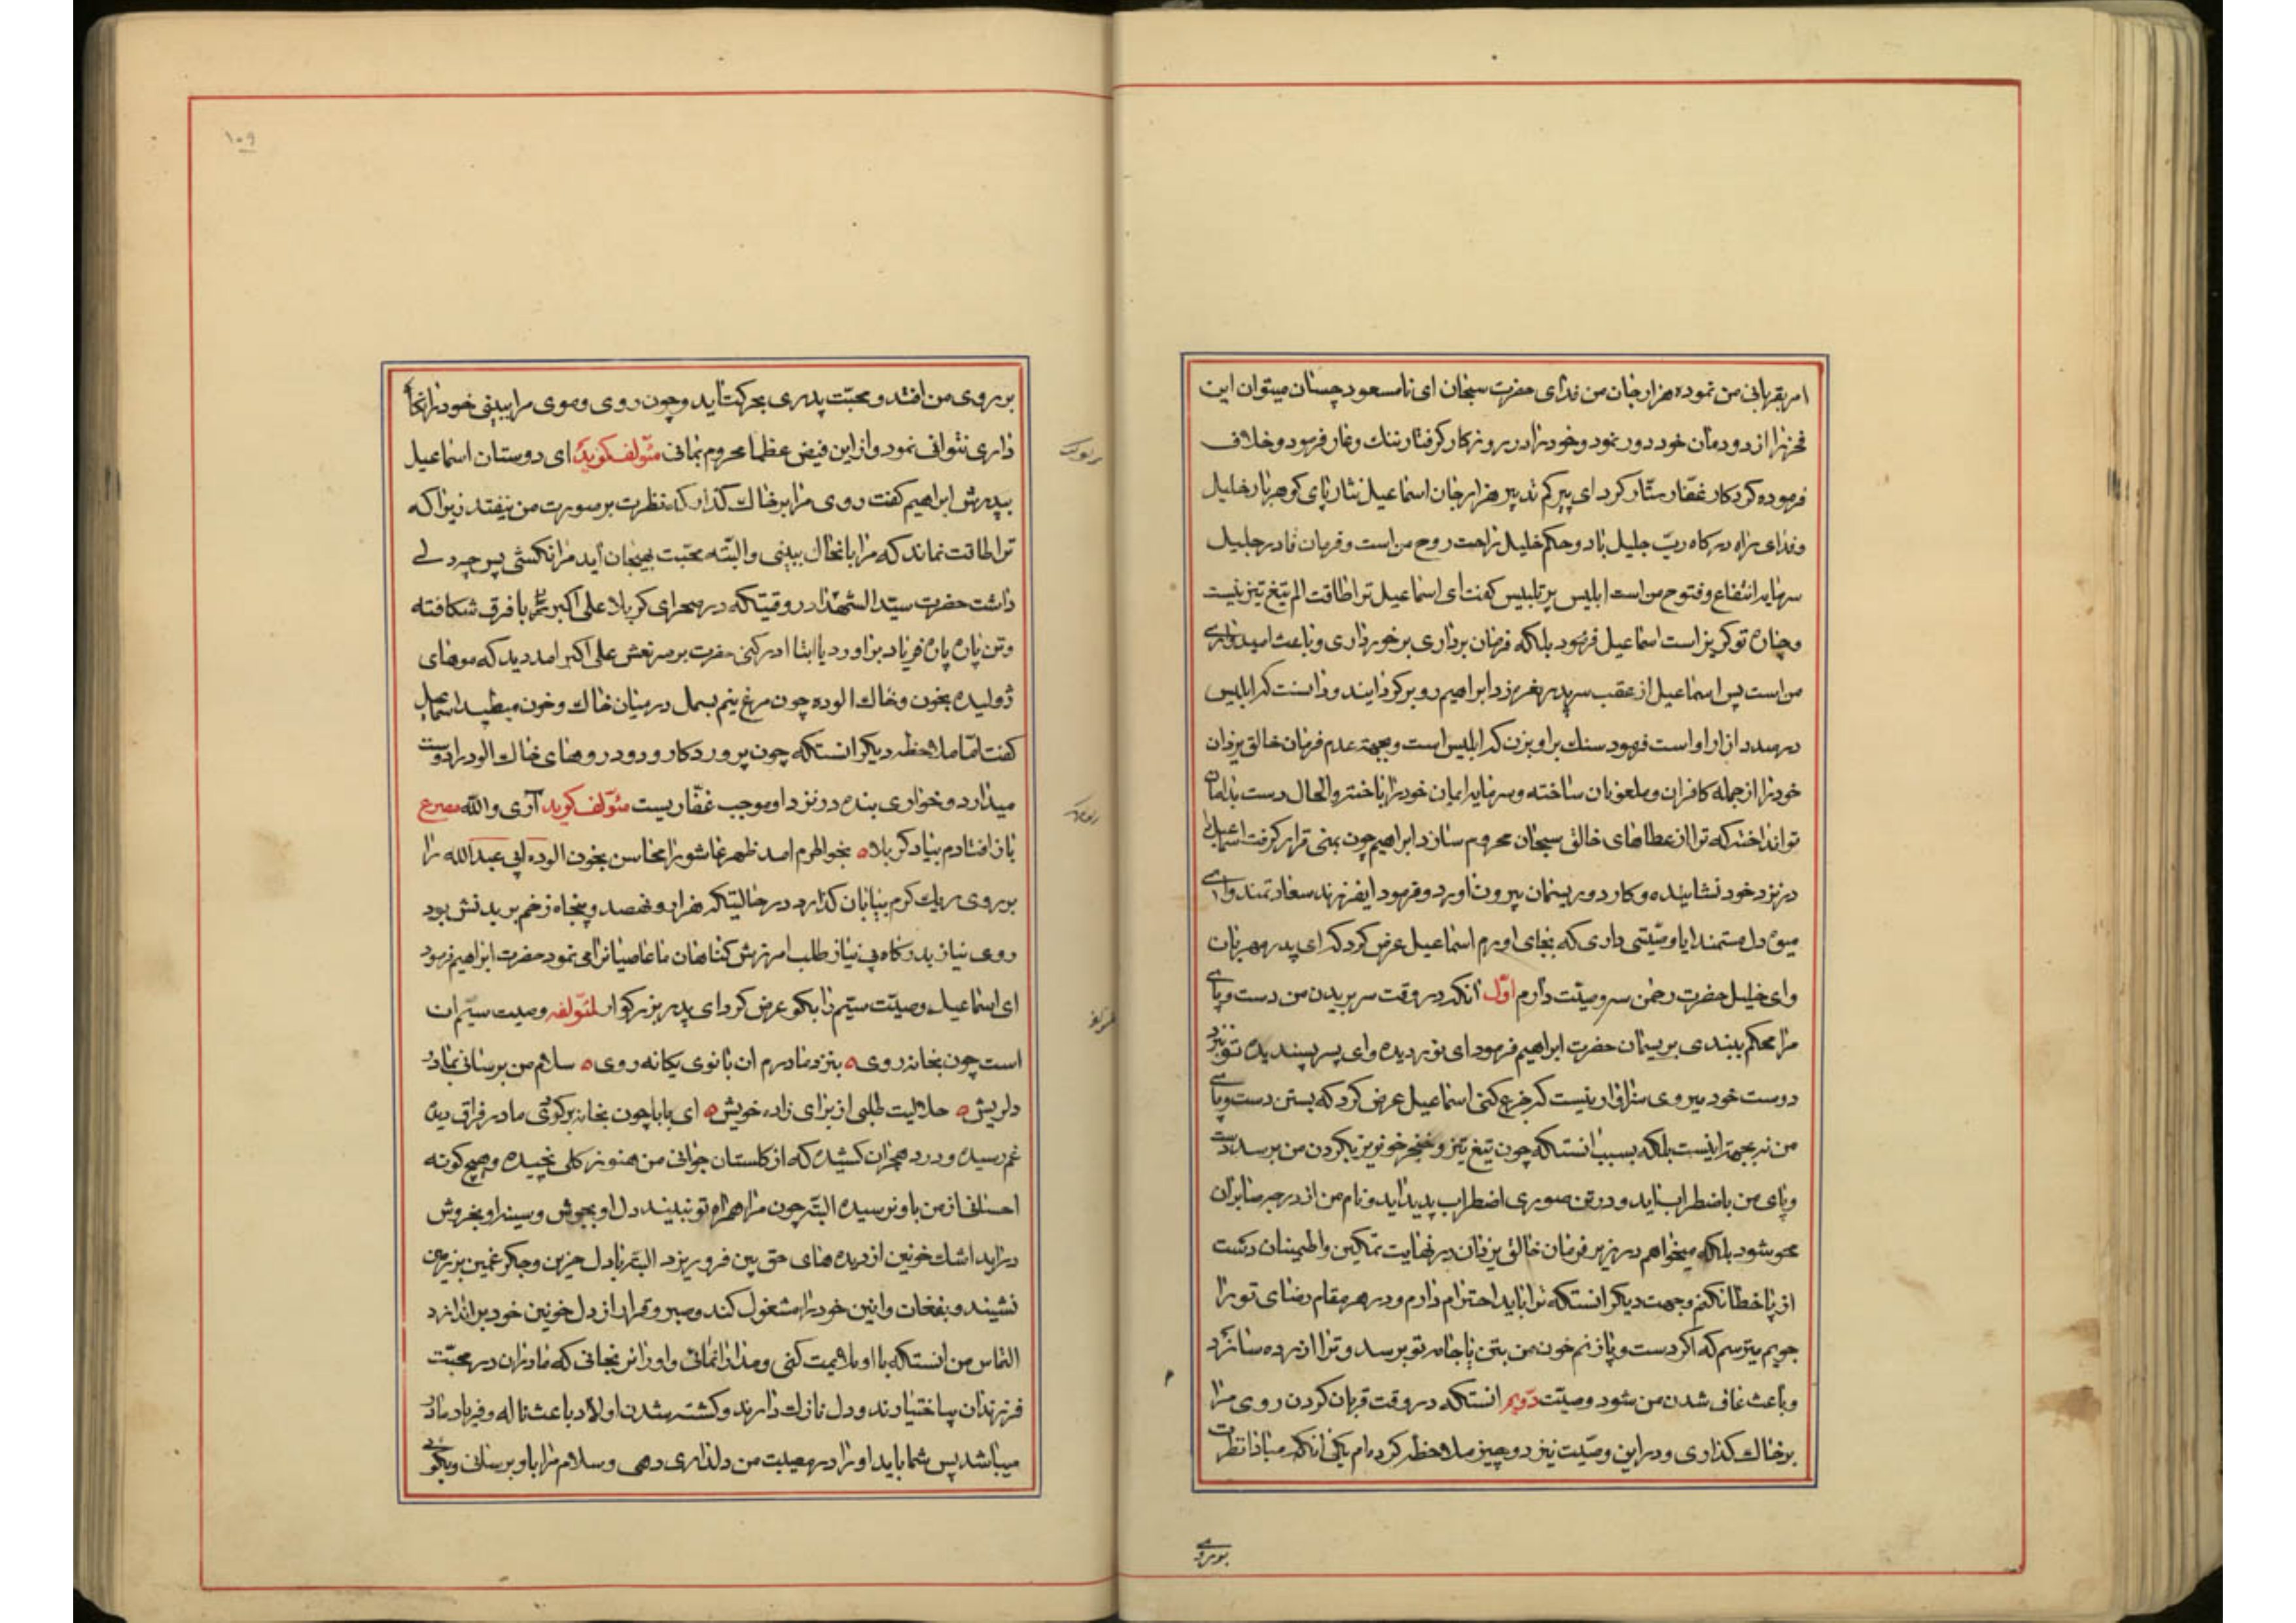 امر بقربانی من نموده هزار جان من فدای حضرت سبحان ای نامسعود چسان میتوان این
فخر را از دودمان خود دور نمود و خود را در روزکار کرفتار ننك و عار فرمود و خلاف
فرموده کردکار غفّار ستّار کرد ای پیر کم تدبیر هزار جان اسماعیل نثار پای کوهربار خلیل
و فدای راه درکاه ربّ جلیل باد و حکم خلیل راحت روح من است و فرمان قادر جلیل
سرمایه انتفاع و فتوح من است ابلیس پر تلبیس کفت ای اسماعیل ترا طاقت الم تیغ تیز نیست
و چاره تو کریز است اسماعیل فرمود بلکه فرمان برداری برخورداری و باعث امیدواری
من است پس اسماعیل از عقب سر پدر نعره زد ابراهیم رو برکردانید و دانست که ابلیس
در صدد ازار او است فرمود سنك بر او بزن که ابلیس است و بجهة عدم فرمان خالق یزدان
خود را از جمله کافران و ملعونان ساخته و سرمایه ایمان خود را باخته والحال دست بدامان
تو انداخته که ترا از عطاهای خالق سبحان محروم سازد ابراهیم چون بمنی قرار کرفت اسماعیل را
در نزد خود نشانیده و کارد و ریسمان بیرون اورد و فرمود ایفرزند سعادتمند وای
میوه دل مستمند ایا وصیّتی داری که بجای اورم اسماعیل عرض کرد که ای پدر مهربان
وای خلیل حضرت رحمن سه وصیّت دارم اوّل آنکه در وقت سر بریدن من دست و پای
مرا محکم ببندی بریسمان حضرت ابراهیم فرمود ای نور دیده وای پسر پسندیده تو بنزد
دوست خود میروی سزاوار نیست که جزع کنی اسماعیل عرض کرد که بستن دست و پای
من نه بجهة اینست بلکه بسبب انستکه چون تیغ تیز و خنجر خونریز بکردن من برسد دست
و پای من باضطراب اید و در تن صوری اضطراب پدید اید و نام من از در جرصابران
محو شود بلکه میخواهم در زیر فرمان خالق یزدان در نهایت تمکین و اطمینان دست
از پا خطا نکنم و جهت دیکر انستکه ترا باید احترام دارم و در هر مقام رضای تو را
جویم میترسم که اکر دست و پا زنم خون من بتن یا جامه تو برسد و ترا ازرده سازد
و باعث عاق شدن من شود وصیّت دویم انستکه در وقت قربان کردن روی مرا
بر خاك کذاری و در این وصیّت نیز دو چیز ملاحظه کرده‌ام یکی انکه مبادا نظرت
بر روی
۱۰۹
بر روی من افتد و محبّت پدری بحرکت اید و چون روی و موی مرا ببینی خود را نکاه
داری نتوانی نمود و از این فیض عظما محروم بمانی مئولف کوید ای دوستان اسماعیل
بپدرش ابراهیم کفت روی مرا بر خاك کذار که نظرت بر صورت من نیفتد زیرا که
ترا طاقت نماند که مرا بانحال ببینی و البتّه محبّت بهیجان آید مرا نکشی پس چه دلی
داشت حضرت سیّد الشهدا در وقتیکه در صحرای کربلا علی اکبر با فرق شکافته
و تن پاره پاره فریاد براورد یا ابتا ادرکنی حضرت بر سر نعش علی اکبر امد دید که موهای
ژولیده بخون و خاك الوده چون مرغ نیم بسمل در میان خاك و خون میطپید اسماعیل
کفت امّا ملاحظه دیکر انستکه چون پروردکار ودود روهای خاك الود را دوست
میدارد و خواری بنده در نزد او موجب غفّاریست مئولف کوید آری والله مصرع
باز افتادم بیاد کربلا ه بخواطرم امد ظهر عاشورا محاسن بخون الوده ابی عبدالله را
بر روی ریك کرم بیابان کذارد در حالتیکه هزار و نهصد و پنجاه زخم بر بدنش بود
روی نیاز بدرکاه بی نیاز طلب امرزش کناهان ما عاصیانرا می نمود حضرت ابراهیم فرمود
ای اسماعیل وصیّت سیّم را بکو عرض کرد ای پدر بزرکوار لمئولفه وصیت سیّم ان
است چون بخانه روی ه بنزد مادرم ان بانوی یکانه روی ه سلام من برسانی بمادر
دلریش ه حلالیت طلبی از برای زاده خویش ه ای بابا چون بخانه برکردی مادر فراق دیده
غم رسیده و درد هجران کشیده که از کلستان جوانی من هنوز کلی نچیده و هیچ کونه
احسانی از من باو نرسیده البتّه چون مرا همراه تو نبیند دل او بجوش و سینه او بخروش
دراید اشك خونین از دیده های حق بین فرو ریزد البتّه با دل حزین و جکر غمین بزمین
نشیند و بفغان و انین خود را مشغول کند و صبر و قرار از دل خونین خود براندازد
التماس من انستکه با او ملایمت کنی و مدارا نمائی و او را نرنجانی که مادران در محبّت
فرزندان بیاختیارند و دل نازك دارند و کشته شدن اولاد باعث ناله و فریاد مادر
میباشد پس شما باید او را در مصیبت من دلداری دهی و سلام مرا باو برسانی و بکوئی